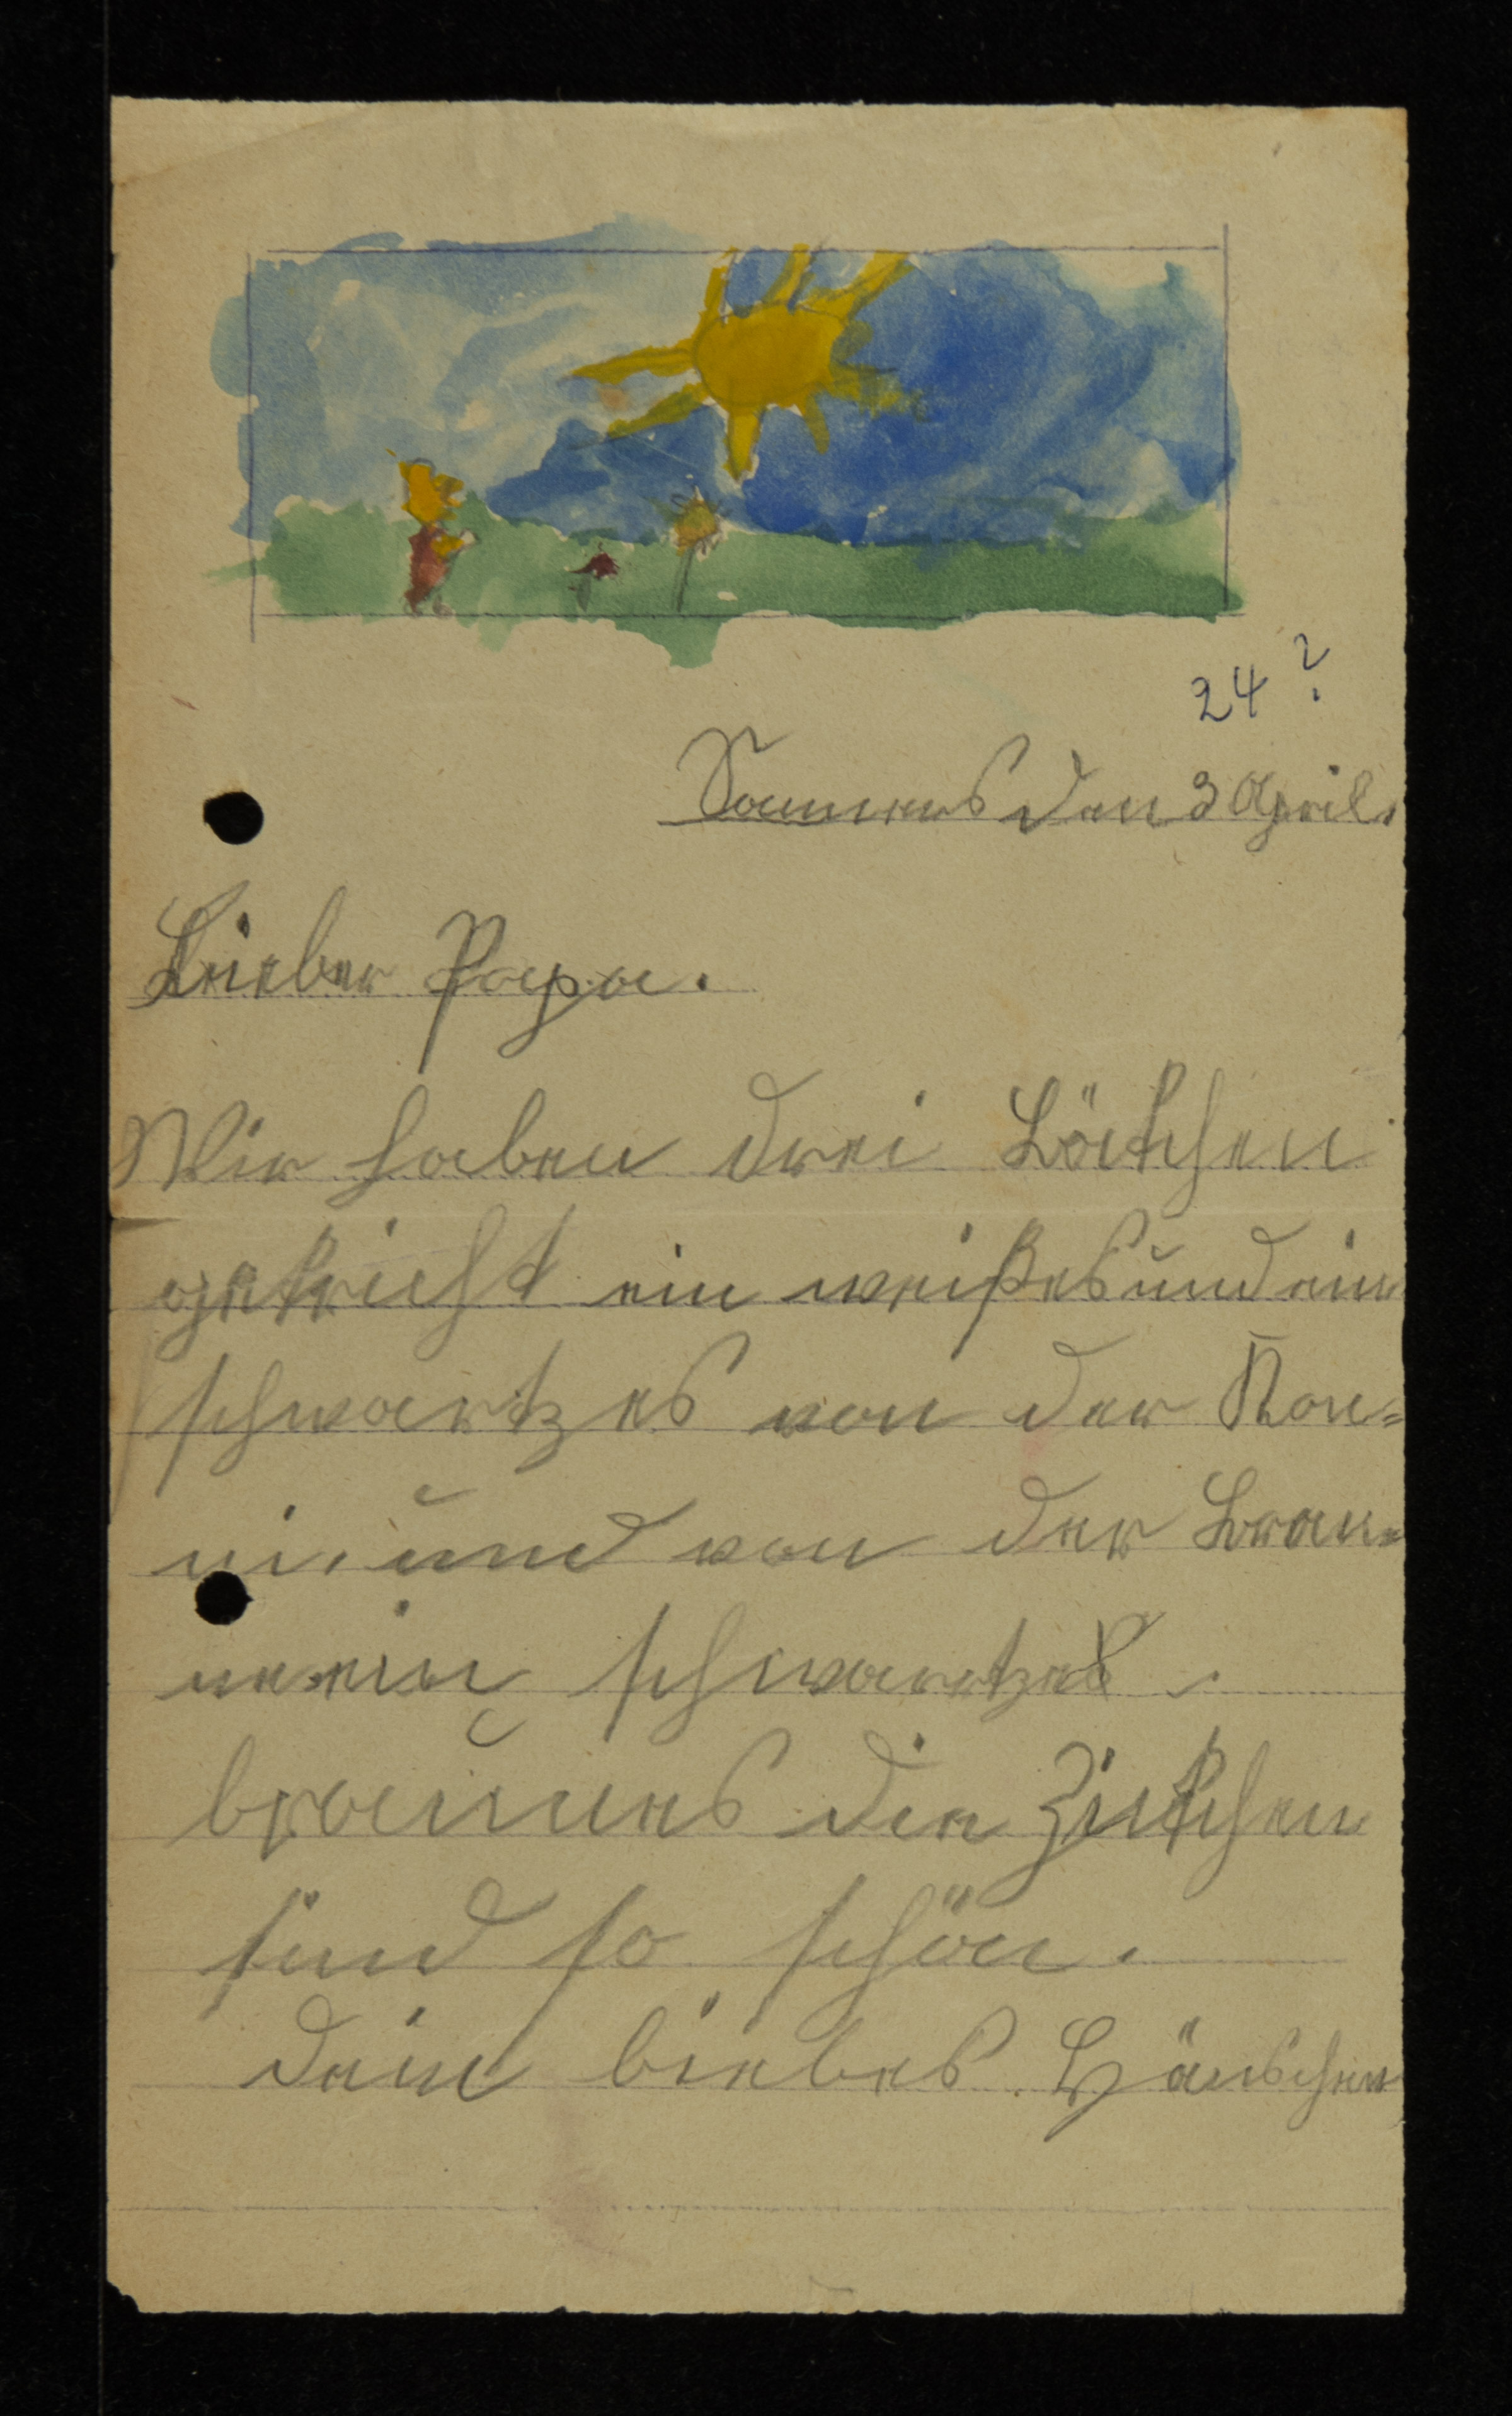 24 ?
Sanners den 3 April.
Lieber Papa.
Wir haben drei Böckhen
gekricht ein weißes und ein
schwartzes von der
ni. und von der
ne ein schwartzes
braunes die Zickhen
sind so schön.
dein liebes Hänschen